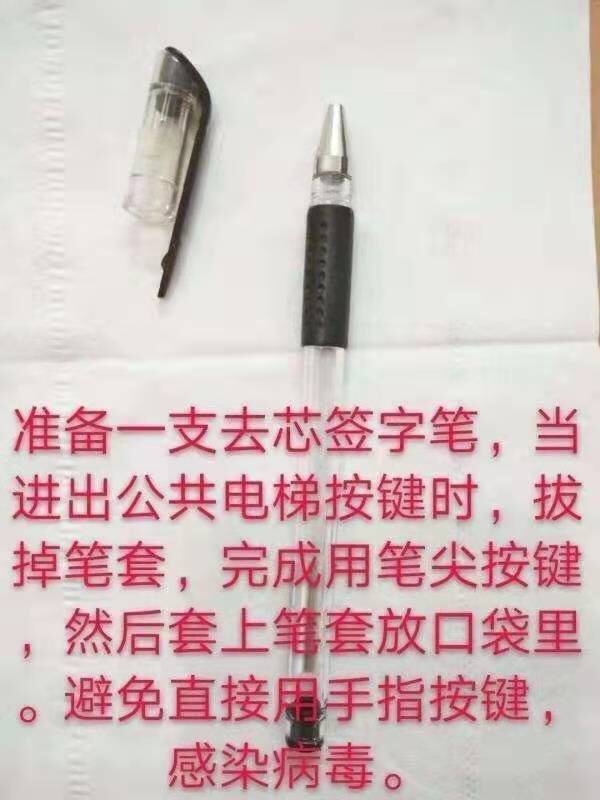 准备一支去芯签字笔，当
进出公共电梯按键时，拔
掉笔套，完成用笔尖按键
，然后套上笔套放口袋里
。避免直接用手指按键，
感染病毒。